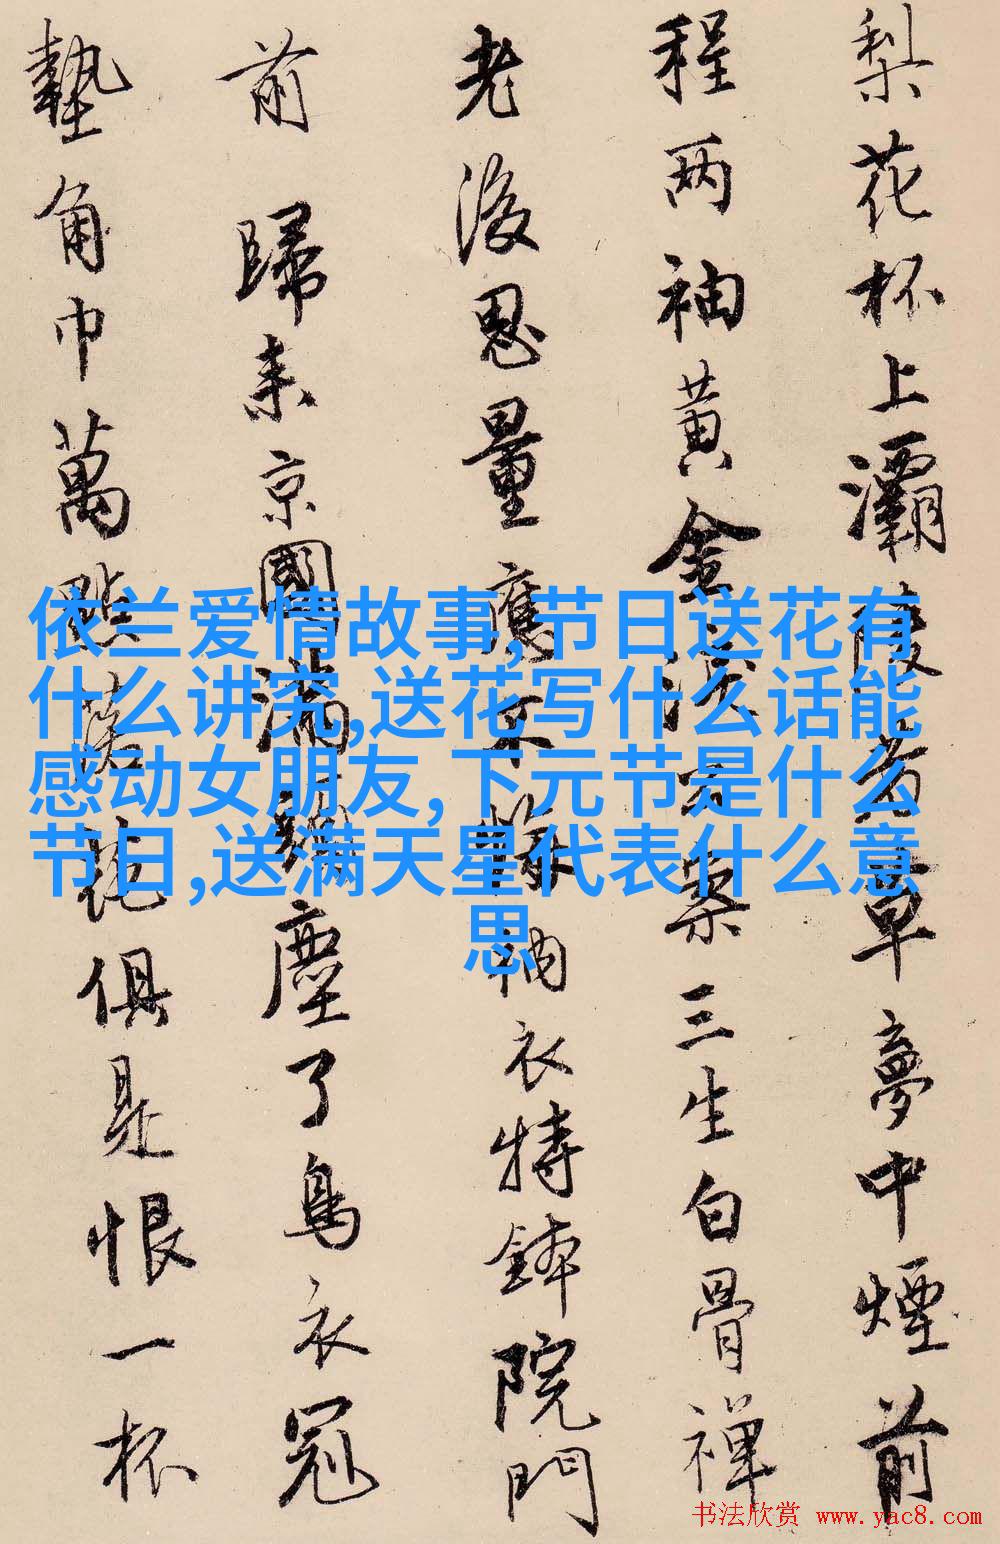 梨花杯上灞陵春草夢中煙前
程两袖黄金淚公案三生白骨禅
老後思量應不悔衲衣持鉢院門
前 歸来京國満頭塵了鳥衣冠
墊角巾萬點落花俱是恨一杯
依兰爱情故事,节日送花有
什么讲究,送花写什么话能
感动女朋友,下元节是什么
节日,送满天星代表什么意
思
书法欣赏 www.yac8.com